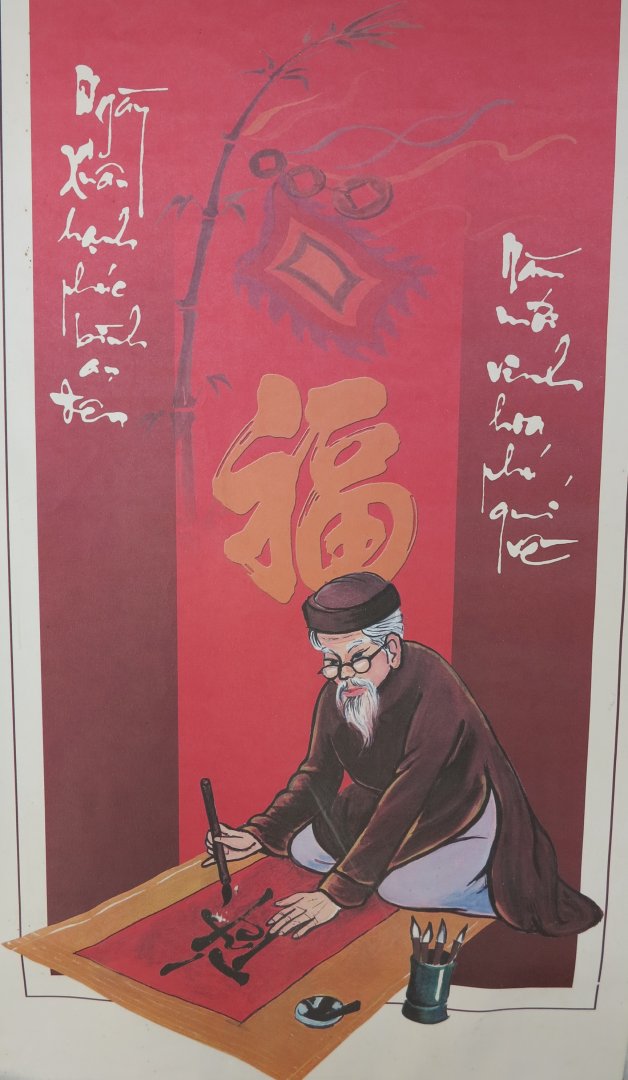 Ngày
Xuân
hạnh
phúc
bình
an
đến
福
Năm
mới
vinh
hoa
phú
quí
về